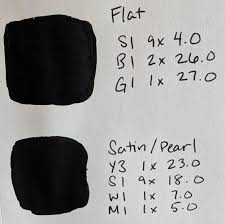 Flat
S1 9x 4.0
B1 2x 26.0
G1 1x 27.0
Satin/Pearl
Y3 1x 23.0
S1 9x 18.0
W1 1x 7.0
M1 1x 5.0